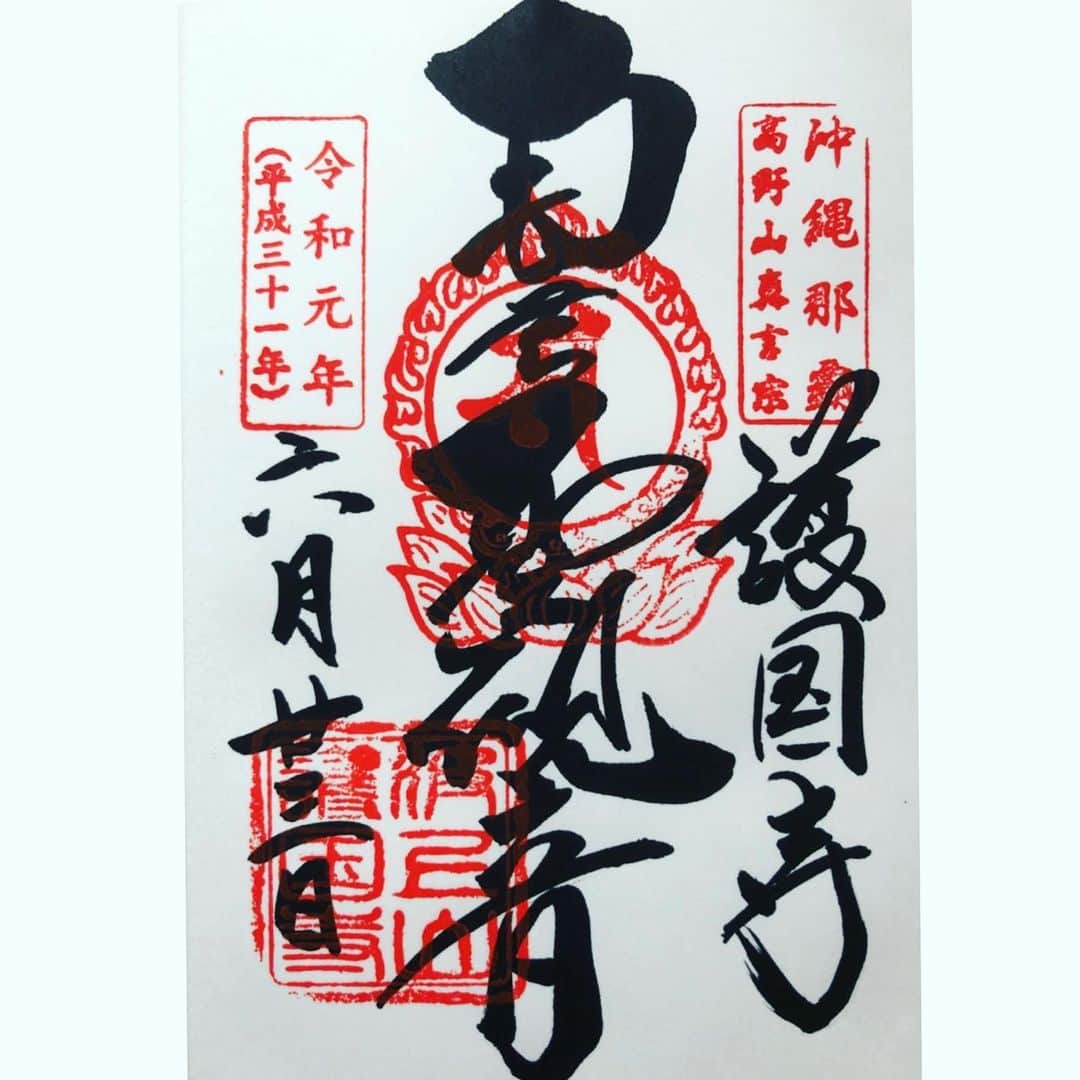 沖縄那覇
高野山真言宗
護国寺
聖観音
令和元年
(平成三十一年)
六月廿三日
波上山
護国寺